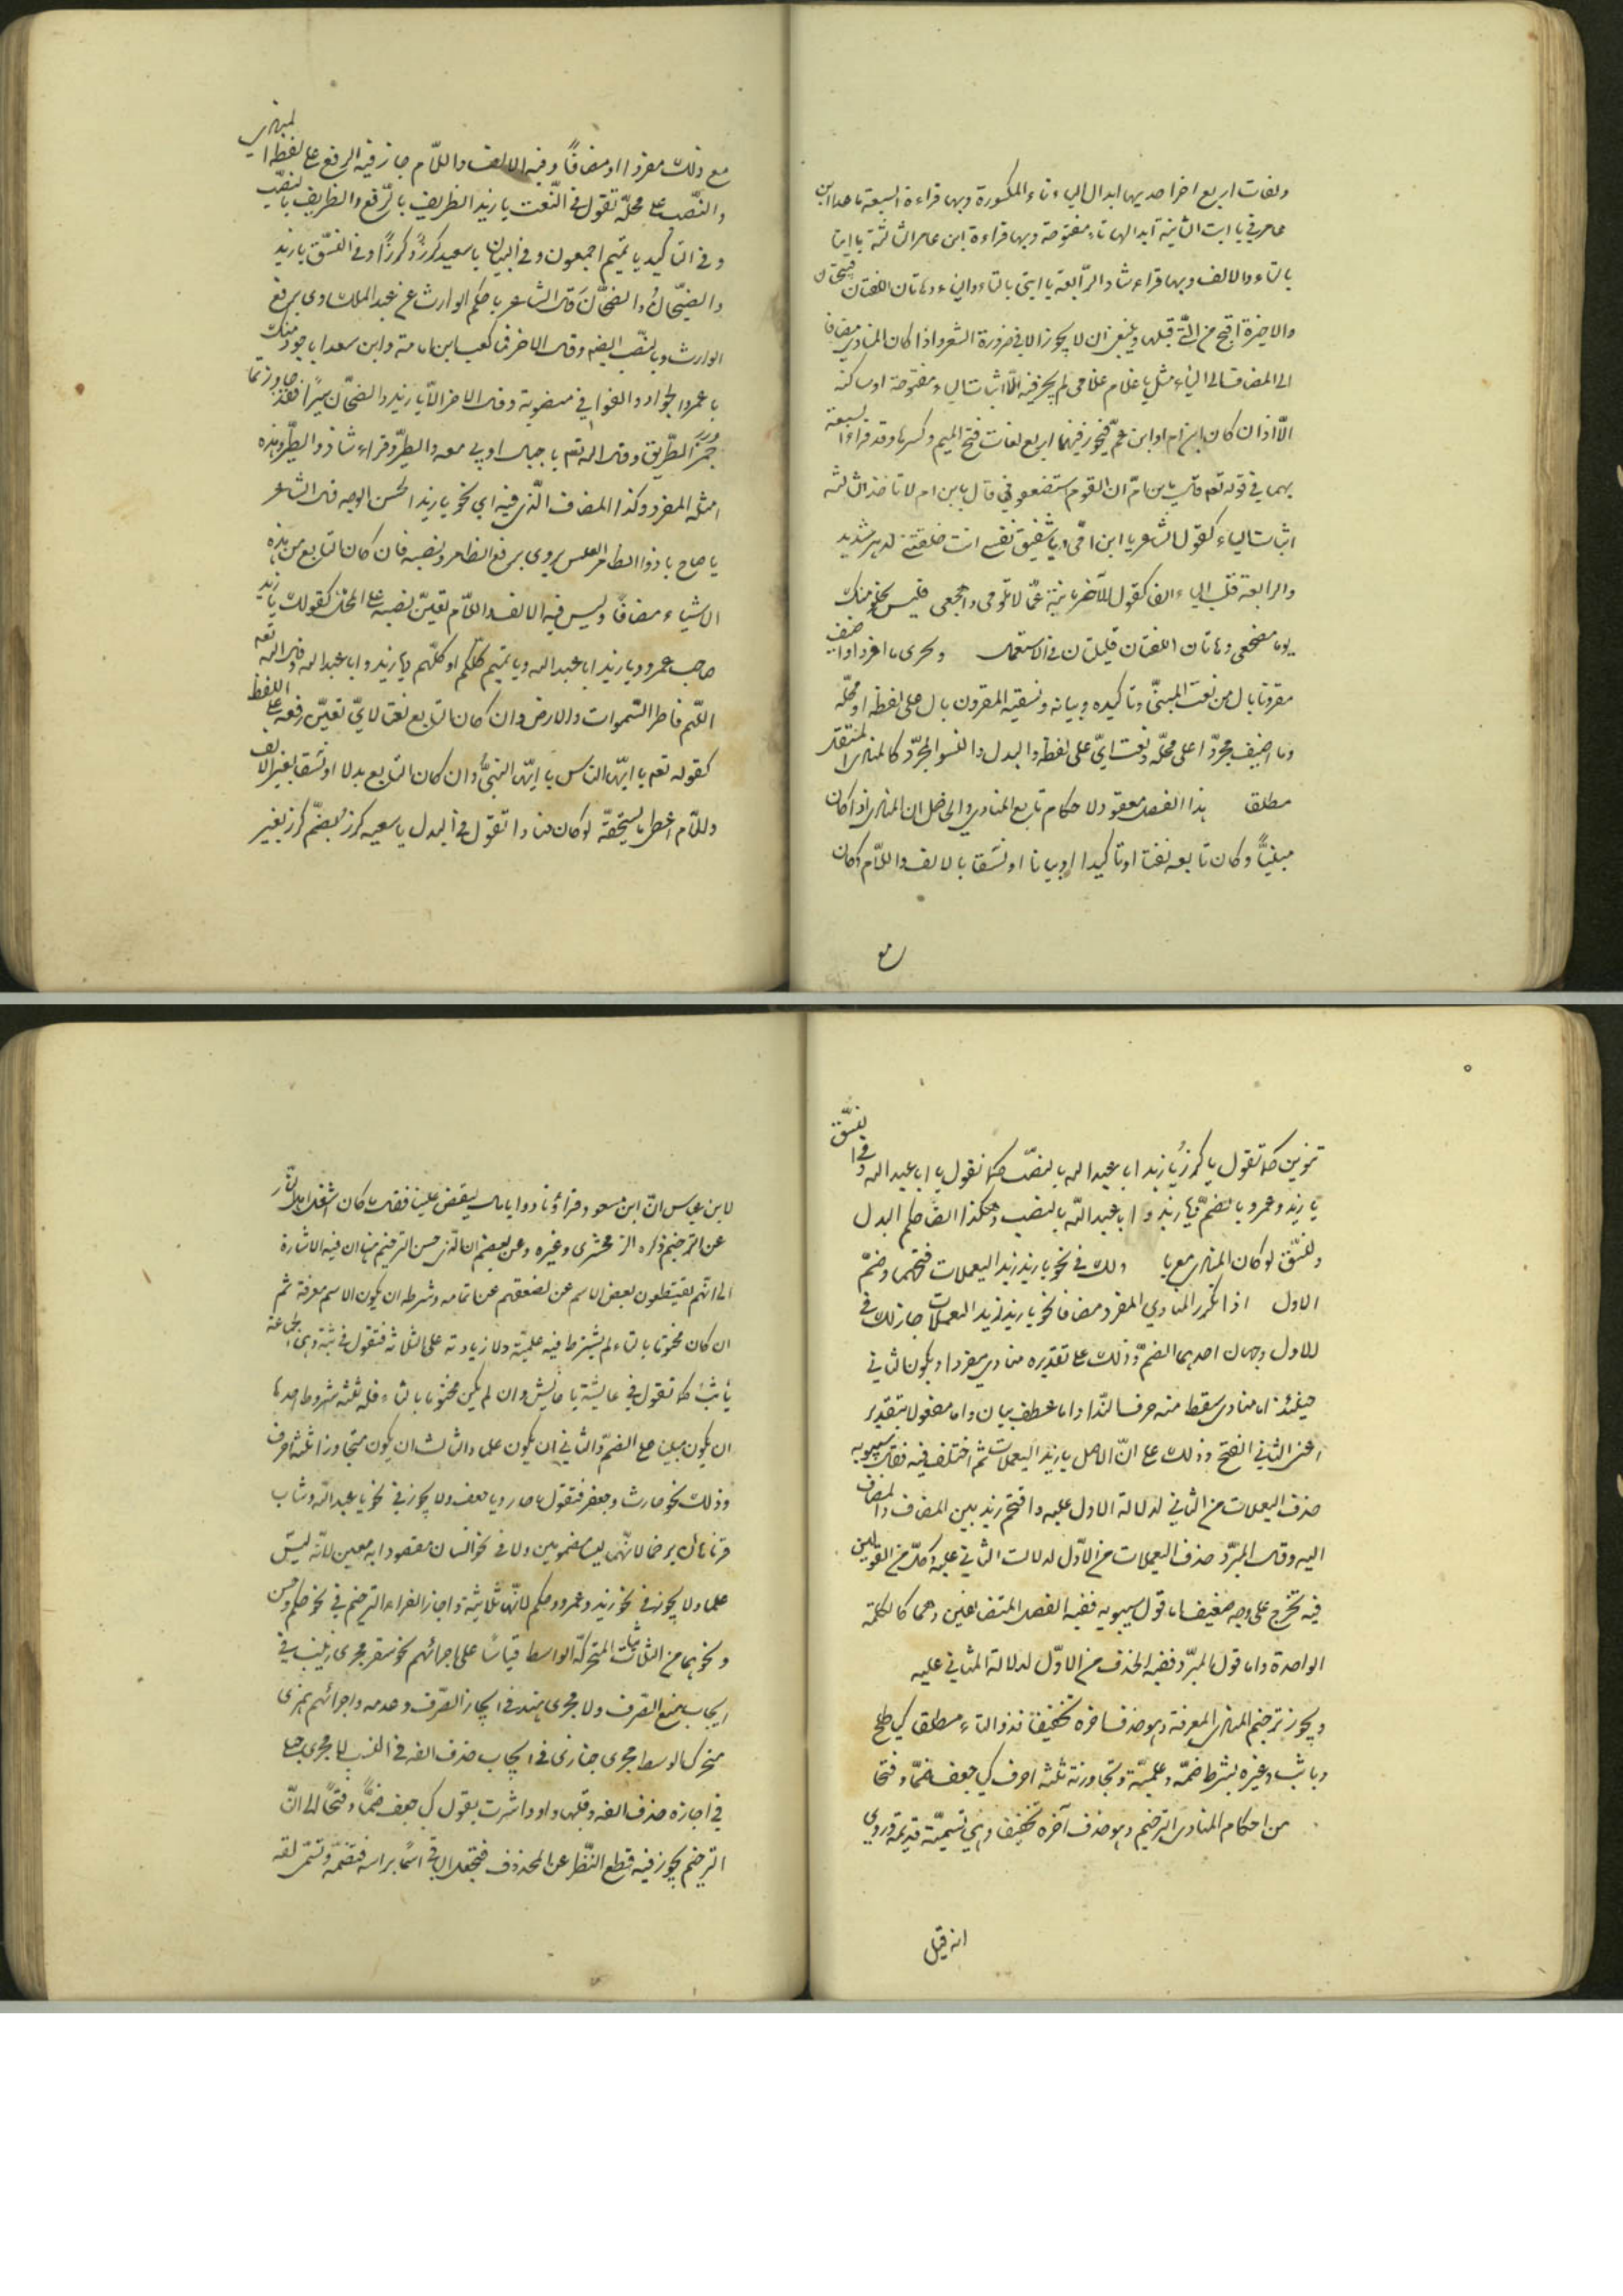 ولغات اربع اخر احديها ابدال الياء تاء المكسورة وبها قراءة السبعة ما عدا ابن
عامر في يا ابت الثانية ابدالها تاء مفتوحة وبها قراءة ابن عامر الثالثة يا ابتا
بالتاء والالف وبها قراء شاذ الرّابعة يا ابتي بالتاء والياء وهاتان اللغتان قبيحتان
والاخيرة اقبح من الّتي قبلها وينبغي ان لا يجوز الا في ضرورة الشعر واذا كان المنادى مضافا
الى المضاف الى الياء مثل يا غلام غلامي لم يجز فيه الّا اثبات الياء مفتوحة او ساكنة
الّا اذا ان كان ابن ام او ابن عمّ فيجوز فيهما اربع لغات فتح الميم وكسرها وقد قراء السبعة
بهما في قوله تعه قال يا بن امّ ان القوم استضعفوني قال يا بن ام لا تاخذ الثالثة
اثبات الياء كقول الشاعر يا ابن امّي ويا شقيق نفسي انت خلفتني لدهر شديد
والرابعة قلب الياء الفا كقول الآخر يا بنة عمّا لا تلومي واهجعي فليس يخلو منك
يوما مضجعي وهاتان اللغتان قليلتان في الاستعمال ويجرى ما افرد او اضيف
مقرونا بال من نعت المبنىّ وتاكيده وبيانه ونسقيه المقرون بال على لفظه او محلّه
وما اضيف مجرّدا على محلّه ونعت ايّ على لفظه والبدل والنسق المجرّد كالمنادى المستقل
مطلقا هذا الفصل معقود لاحكام تابع المنادى والحاصل ان المنادى اذا كان
مبنيّاً وكان تابعه نعتا او تاكيدا او بيانا او نسقا بالالف واللّام وكان
مع
مع ذلك مفردا او مضافاً وفيه الالف واللّام جاز فيه الرفع على لفظه المنادى
والنّصب على محلّه تقول في النّعت يا زيد الظريف بالرّفع والظريف بالنّصب
وفي التاكيد يا تميم اجمعون وفي البيان يا سعيد كرزٌ وكرزاً وفي النّسق يا زيد
والضحّاكُ والضحّاكَ قال الشاعر يا حكم الوارث عن عبد الملك روى برفع
الوارث وبالنصب ايضه وقال الاخر فما كعب ابن مامة وابن سعدا باجود منك
يا عمر الجوادا والقوافي منصوبة وقال الاخر الّا يا زيد والضحّاك سيراً فقد جاوزتما
خمر الطّريق وقال اله تعه يا جبال اوبي معه والطيرُ وقراء شاذ والطيرَ وهذه
امثله المفرد وكذا المضاف الّذي فيه ال نحو يا زيد الحسن الوجه قال الشاعر
يا صاح يا ذوا الضامر العنس يروى برفع الضامر ونصبه فان كان التابع من هذه
الاشياء مضافاً وليس فيه الالف واللّام تعيّن نصبه على المحل كقولك يا زيد
صاحب عمرو ويا زيد ابا عبد اله ويا تميم كلّكم او كلّهم ويا زيد وابا عبد اله وقال اله تعه
اللّهم فاطر السّموات والارض وان كان التابع نعتا لايّ تعيّن رفعه على اللفظ
كقوله تعه يا ايّها الناس يا ايّها النبيّ وان كان التابع بدلا او نسقا بغير الالف
واللّام اعطى ما يستحقّه لو كان منادا تقول في البدل يا سعيد كرزُ بضمّ كرز بغير
تنوين كما تقول يا كرزُ يا زيد ابا عبد اله بالنصب كما تقول يا ابا عبد اله وفي النسق
يا زيد وعمرو بالضمّ ويا زيد وابا عبد الله بالنصب وهكذا ايضا حكم البدل
والنسّق لو كان المنادى معربا ولك في نحو يا زيد زيد اليعملات فتحهما وضمّ
الاول اذا تكرر المنادي المفرد مضافا نحو يا زيد زيد اليعملات جاز لك في
الاول وجهان احدهما الضمّ وذلك على تقديره منادى مفردا ويكون الثاني
حينئذ اما منادى سقط منه حرف النّدا واما عطف بيان واما مفعولا بتقدير
اعني الثاني الفتح وذلك على انّ الاصل يا زيد اليعملات ثم اختلف فيه فقال سيبويه
حذف اليعملات من الثاني لدلالة الاول عليه واقتحم زيد بين المضاف والمضاف
اليه وقال المبرّد حذف اليعملات من الاوّل لدلالت الثاني عليه وكلّ من القولين
فيه تخرج على وجه ضعيف اما قول سيبويه ففيه الفصل المتضايفين وهما كالكلمة
الواحدة واما قول المبرّد ففيه الحذف من الاوّل لدلالة الثاني عليه
ويجوز ترخيم المنادى المعرفة وهو حذف اخره تخفيفا فذو التاء مطلقا كيا طلح
ويا ثب وغيره بشرط ضمّه وعلميّته وتجاوزته ثلثه احرف كيا جعف ضمّا وفتحا
من احكام المنادى الترخيم وهو حذف آخره تخفيفا وهي تسميّة قديمه وروي
انه قيل
لابن عباس انّ ابن مسعود قراء ونادوا يا مال ليقض علينا فقال ما كان اشغل اهل النّار
عن الترخيم ذكره الزمخشري وغيره وعن بعضهم ان الّذي حسن الترخيم هنا ان فيه الاشارة
الى انّهم يقتطعون بعض الاسم عن لضعفهم عن اتمامه وشرطه ان يكون الاسم معرفة ثم
ان كان مختوتا بالتاء لم يشترط فيه علميّة ولا زيادة على الثلاثة فتقول في ثبة وهي الجماعة
يا ثبُ كما تقول في عايشة يا عايش وان لم يكن مختوما بالتاء فله ثلثه شروط احدها
ان يكون مبنيا على الضمّ والثاني ان يكون علما والثالث ان يكون متجاوزا ثلثه احرف
وذلك نحو حارث وجعفر فتقول يا حار ويا جعف ولا يجوز في نحو يا عبد الله وشاب
قرناها ان يرخما لانّهما ليسا مضمومين ولا في نحو انسان مقصودا به معين لانّه ليس
علما ولا يجوز في نحو زيد وعمرو وحكم لانّها ثلاثيّة واجاز الفراء الترخيم في نحو حكم وحسن
ونحوهما من الثلاثيّات المتحركة الواسط قياساً على اجرائهم نحو سقر مجرى زينب في
ايجاب منع الصّرف ولا مجرى هند في ايجاز الصّرف وعدمه واجرائهم جمزى
متحرك الوسط مجرى حبارى في ايجاب حذف الفه في النسب لا مجرى حبلى
في اجازه حذف الفه وقلبها واو واشرت بقول كيا جعف ضمّاً وفتحاً الى انّ
الترخيم يجوز فيه قطع النّظر عن المحذوف فتجعل الباقي اسمًا براسه فتضمّه وتسمّى لغه